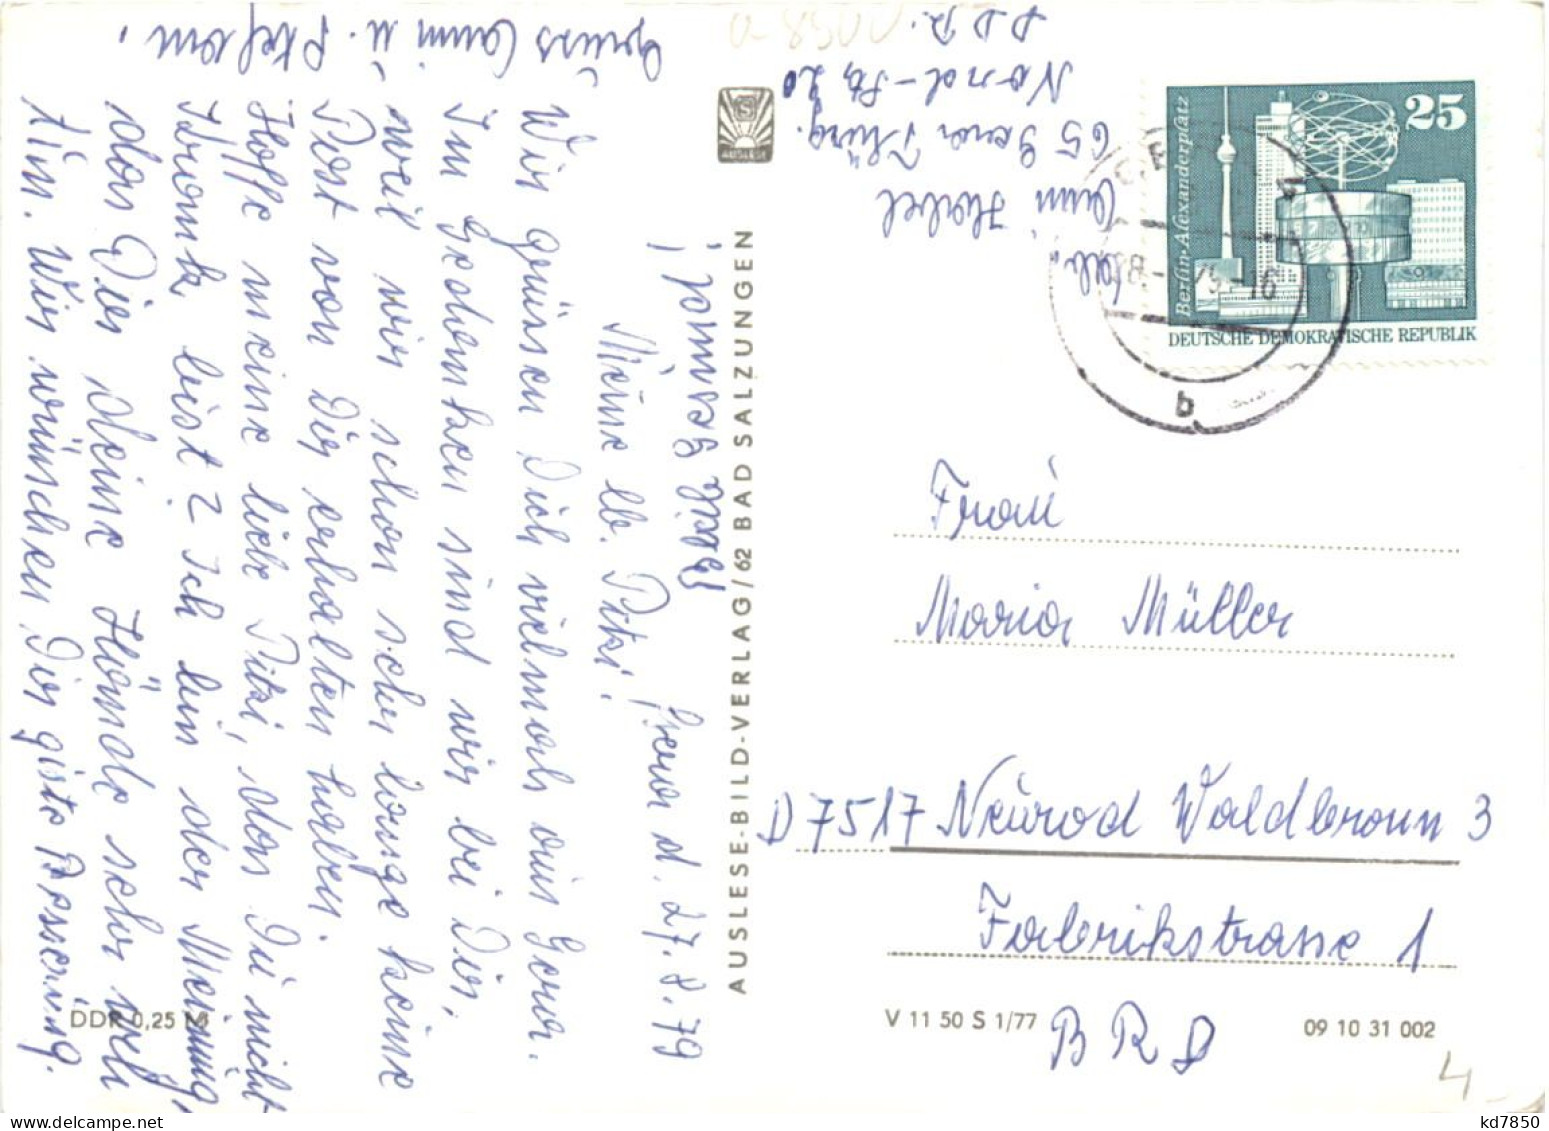 Gera d. 27.8.79
Meine lb. Pitzi!
Wir grüssen Dich vielmals aus Gera.
Im Gedanken sind wir bei Dir,
weil wir schon sehr lange keine
Post von Dir erhalten haben.
Hoffe meine liebe Pitzi, das Du nicht
krank bist? Ich bin der Meinung,
das Dir deine Hände sehr weh
tun. Wir wünschen Dir gute Besserung.
Gruss u. Stefan.
AUSLESE-BILD-VERLAG/62 BAD SALZUNGEN
AUSLESE
65 Gera Thür.
Nord-Str. 20
DDR.
Berlin-Alexanderplatz
25
DEUTSCHE DEMOKRATISCHE REPUBLIK
b
Frau
Maria Müller
D 7517 Neurod Waldbronn 3
Fabrikstrasse 1
BRD
DDR 0,25 M
V 11 50 S 1/77
09 10 31 002
4,-
kd7850